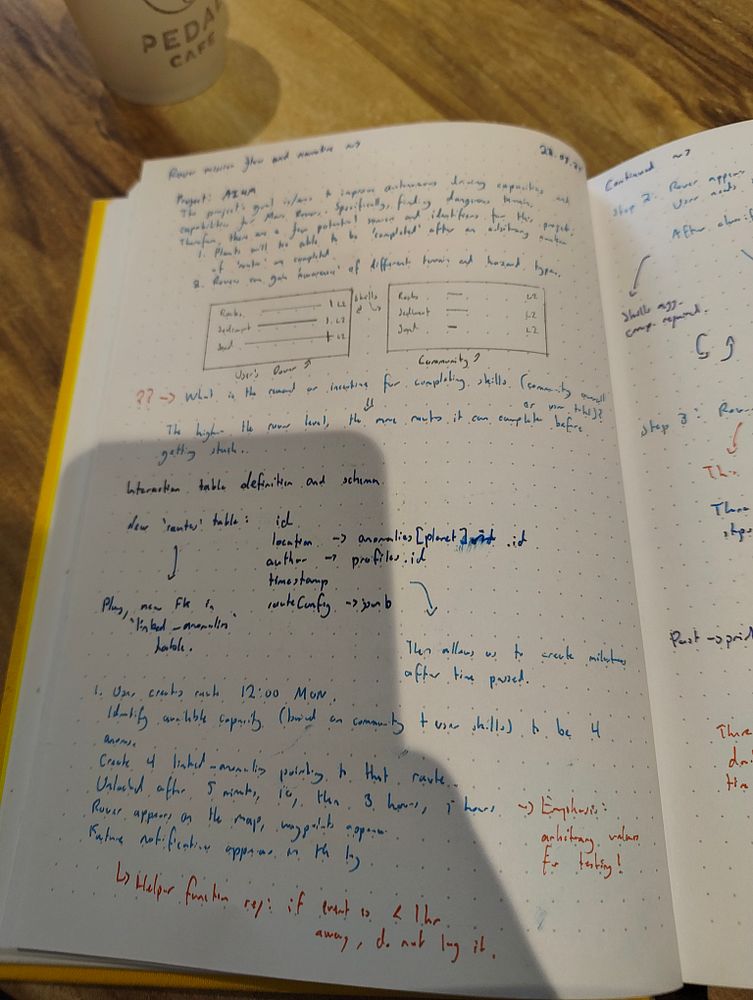 PEDAL
CAFE
Rover mission flow and narrative ~>
Project: AI4M
The project's goal is/was to improve autonomous driving capacities and
capabilities for Mars Rovers. Specifically, finding dangerous terrain.
Therefore, there are a few potential sources and identifiers for this project.
1. Planets will be able to be 'completed' after an arbitrary number
of 'routes' are completed.
2. Rovers can gain 'awareness' of different terrain and hazard types.
Rocks. L2
Sediment L2
Sand L2
User's Rover
Skills
Rocks L2
Sediment L2
Sand L2
Community
?? -> What is the reward or incentive for completing skills (community overall
or user total)?
The higher the rover level, the more routes it can complete before
getting stuck.
Interaction table definition and schema
New 'routes' table: id
location -> anomalies[planet].id
author -> profiles.id
timestamp
routeConfig -> jsonb
Plus, new FK in
'linked_anomalies'
table.
Then allows us to create milestones
after time passed.
1. User creates route 12:00 MON.
Identify available capacity (based on community + user skills) to be 4
anoms.
Create 4 linked-anomalies pointing to that route.
Unlocked after 5 minutes, ie, then 3 hours, 5 hours
Rover appears on the map, waypoints appear
Future notification appears in the log
-> Emphasis:
arbitrary values
for testing!
Helper function req: if event is < 1hr
away, do not log it.
Continued ~>
Step 2: Rover appears
User needs
After
Skills agg.
comp. required.
Step 3: Rov
Past ->